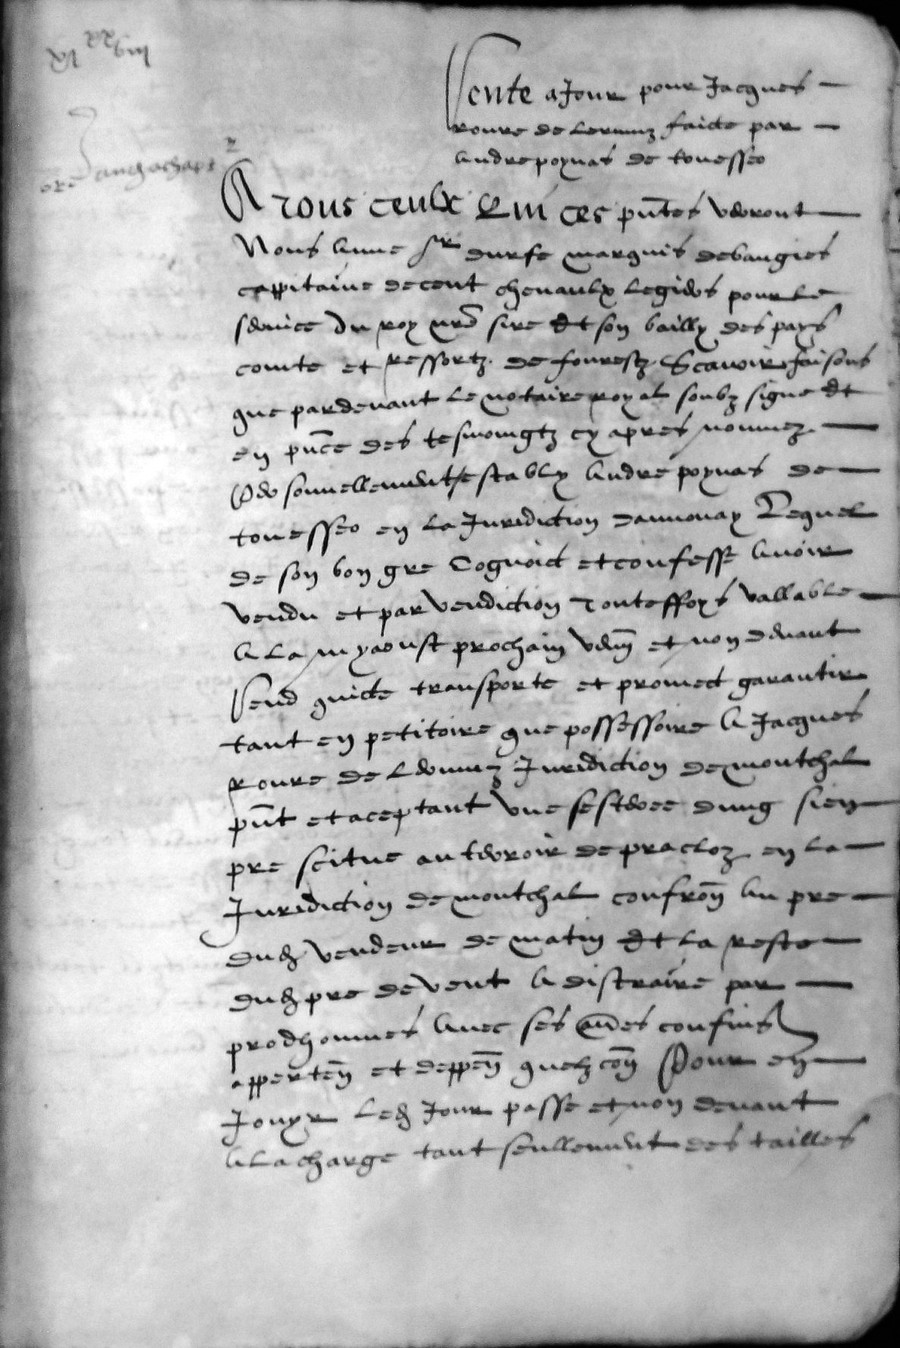 xi xx viii
Vente a Jour pour Jacques
roure de lermuz faicte par
Andre poynas de touesseo
A tous ceulx Qui ces pntes verront
Nous Anne sr durfe marquis debaugies
cappitaine decent chevaulx legiers pour le
service du roy nre sire et son bailly des pays
comte et ressortz de fourestz Scavoir faisons
que pardevant le notaire royal soubz signe et
en pnce des tesmoingtz cy apres nommez
Personnellement establly Andre poynas de
touesseo en la Juridiction dannonay Lequel
de son bon gre Cognoict et confesse Avoir
vendu et par vendiction touteffoys vallable
A la my aoust prochain ven et non devant
Vend quicte transporte et promect garantir
tant en petitoire que possessoire A Jacques
roure de Lermuz Juridiction de montchal
pnt et aceptant une sesteree dung sien
pre scitue au terroir de pracloz en la
Juridiction de montchal confron Au pre
dud vendeur de matin et la reste
dud pre de vent A distraire par
prodhommes Avec ses aues confins
apperten et deppen quelzcon Pour en
Jouyr led Jour passe et non devant
A la charge tant seullement des tailles